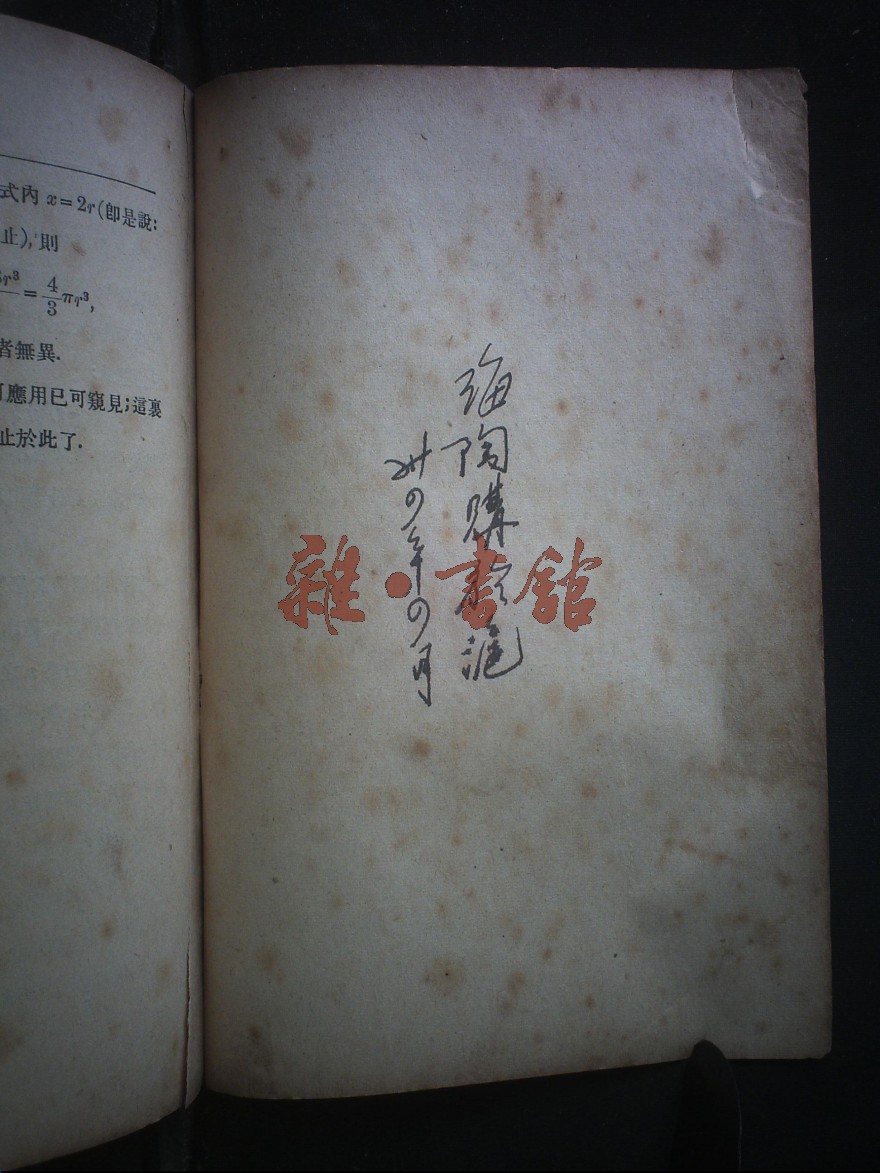 式內 x=2r(卽是說:
止),則
r³ = 4/3 πr³,
者無異.
應用已可窺見;這裏
止於此了.
陶購於滬
卅の年の月
雜·書館